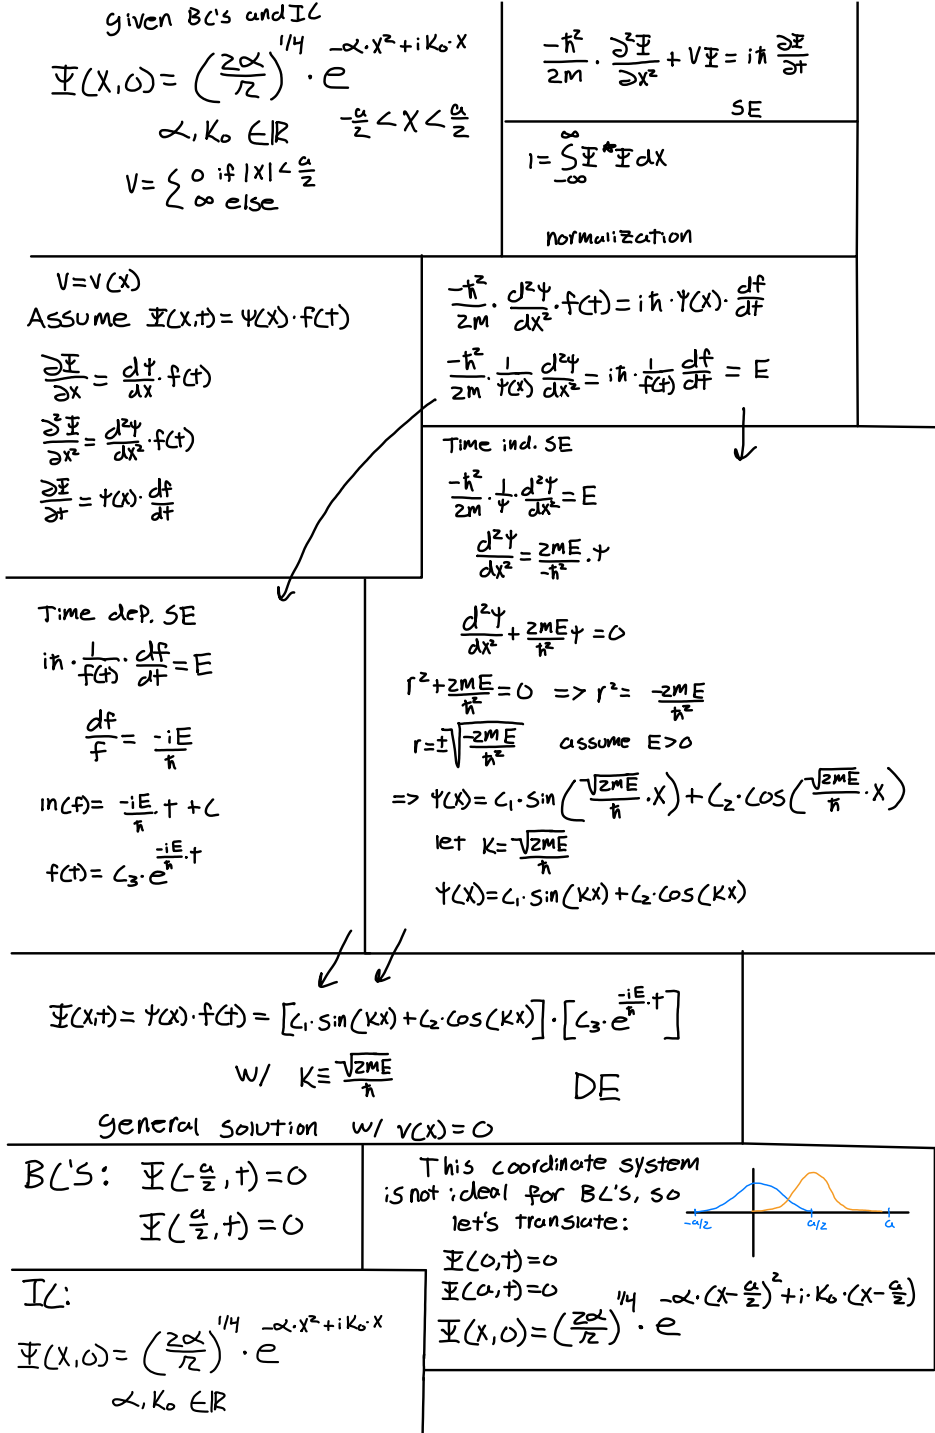 given BC's and IC
Ψ(x,0) = (2α/π)^(1/4) · e^(-α·x²+iK₀·x)
α,K₀ ∈ℝ   -a/2 < x < a/2
V = { 0 if |x| < a/2
∞ else
-ħ²/2m · ∂²Ψ/∂x² + VΨ = iħ ∂Ψ/∂t
SE
1 = ∫_{-∞}^{∞} Ψ*Ψ dx
normalization
V=V(x)
Assume Ψ(x,t) = ψ(x)·f(t)
∂Ψ/∂x = dψ/dx · f(t)
∂²Ψ/∂x² = d²ψ/dx² · f(t)
∂Ψ/∂t = ψ(x) · df/dt
-ħ²/2m · d²ψ/dx² · f(t) = iħ · ψ(x) · df/dt
-ħ²/2m · 1/ψ(x) d²ψ/dx² = iħ · 1/f(t) df/dt = E
Time ind. SE
-ħ²/2m · 1/ψ · d²ψ/dx² = E
d²ψ/dx² = 2mE/-ħ² · ψ
d²ψ/dx² + 2mE/ħ² ψ = 0
r² + 2mE/ħ² = 0 => r² = -2mE/ħ²
r = ±√(-2mE/ħ²) assume E>0
=> ψ(x) = C₁·sin(√(2mE)/ħ · x) + C₂·cos(√(2mE)/ħ · x)
let K = √(2mE)/ħ
ψ(x) = C₁·sin(Kx) + C₂·cos(Kx)
Time dep. SE
iħ · 1/f(t) · df/dt = E
df/f = -iE/ħ
ln(f) = -iE/ħ · t + C
f(t) = C₃·e^(-iE/ħ · t)
Ψ(x,t) = ψ(x)·f(t) = [C₁·sin(Kx) + C₂·cos(Kx)] · [C₃·e^(-iE/ħ · t)]
w/ K ≡ √(2mE)/ħ
DE
general solution w/ V(x) = 0
BC'S: Ψ(-a/2, t) = 0
Ψ(a/2, t) = 0
IC:
Ψ(x,0) = (2α/π)^(1/4) · e^(-α·x²+iK₀·x)
α,K₀ ∈ℝ
This coordinate system
is not ideal for BC's, so
let's translate:
Ψ(0,t) = 0
Ψ(a,t) = 0
Ψ(x,0) = (2α/π)^(1/4) · e^(-α·(x-a/2)²+i·K₀·(x-a/2))
-a/2 a/2 a